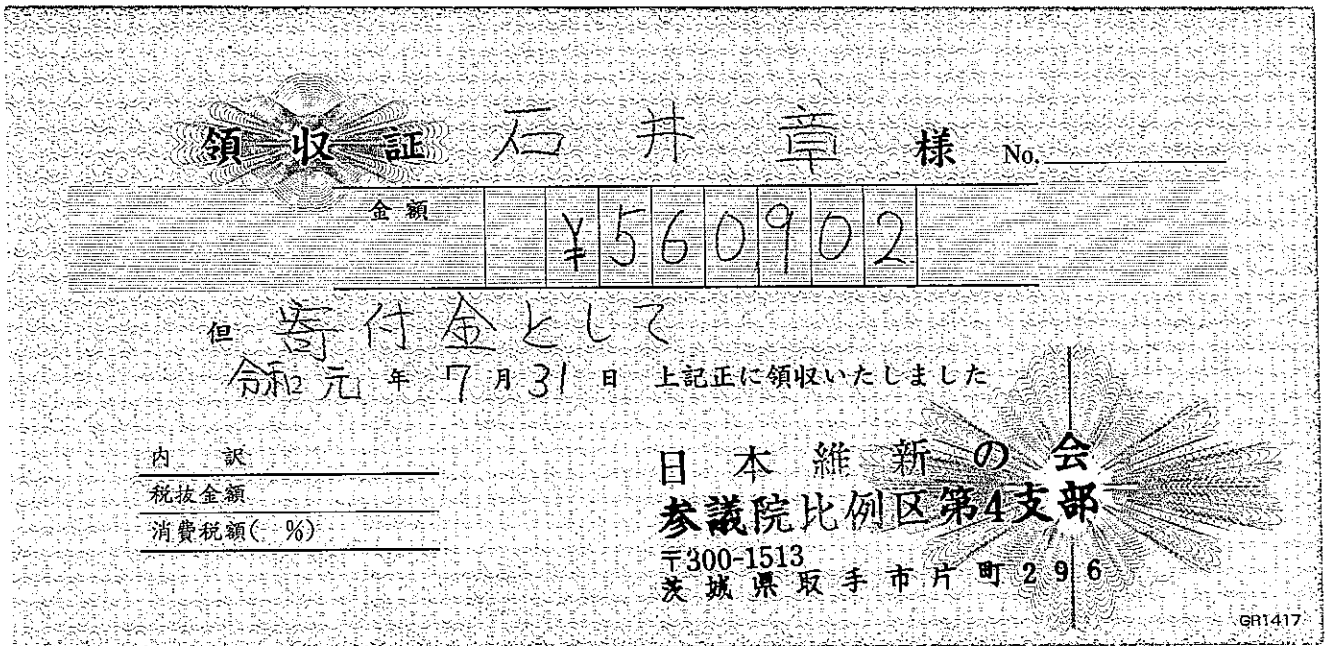 領収証 石井章 様 No.
金額 ¥560902
但 寄付金として
令和元年7月31日 上記正に領収いたしました
内訳
税抜金額
消費税額( %)
日本維新の会
参議院比例区第4支部
〒300-1513
茨城県取手市片町296
GR1417